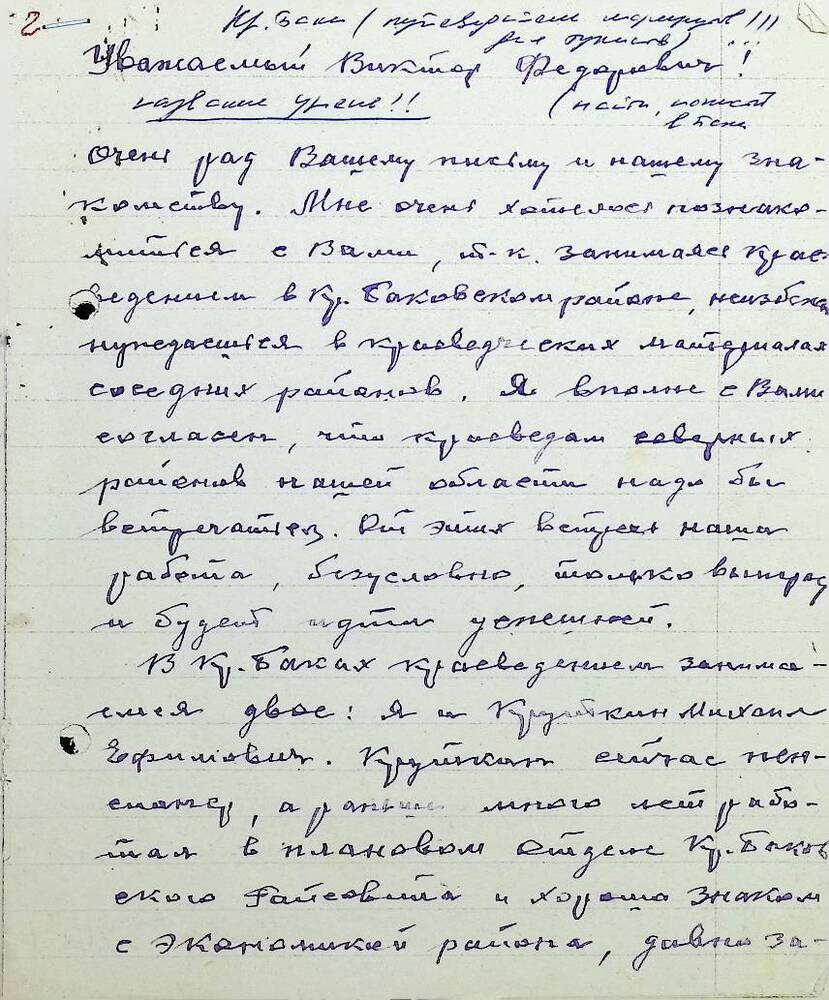 2
Кр. Баки (путеводителем маршрутов!!!
Уважаемый Виктор Федорович!
название !! (найти
очень рад Вашему письму и нашему зна-
комству. Мне очень хотелось познако-
миться с Вами, т.к. занимаясь крае
ведением в Кр. Баковском районе, неизбежн
нуждаешься в краеведческих материалах
соседних районов. Я вполне с Вами
согласен, что краеведам северных
районов нашей области надо бы
встречаться. От этих встреч наша
работа, безусловно, только выиграе
и будет идти успешней.
В Кр. Баках краеведением занима-
емся двое: Я и Круткин Михаил
Ефимович. Круткин сейчас пен-
сионер, а раньше много лет рабо-
тал в плановом отделе Кр. Баков
ского Райсовета и хорошо знаком
с экономикой района, давно за-